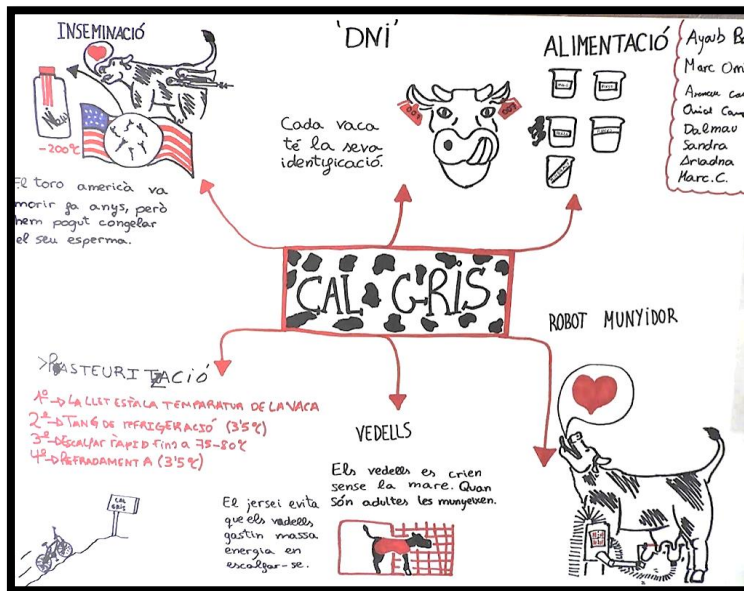 INSEMINACIÓ
-200ºC
El toro americà va
morir fa anys, però
hem pogut congelar
el seu esperma.
'DNI'
Cada vaca
té la seva
identificació.
ALIMENTACIÓ
Ayoub
Marc
Oriol
Dalmau
Sandra
Ariadna
Marc.C.
CAL GRIS
PASTEURITZACIÓ
1º → LA LLET ESTÀ LA TEMPARATUR DE LA VACA
2º → TANG DE REFRIGERACIÓ (3'5ºC)
3º → ESCALFAR RÀPID fins a 75-80ºC
4º → REFRADAMENT A (3'5ºC)
CAL
GRIS
VEDELLS
Els vedells es crien
sense la mare. Quan
són adultes les munyeixen.
El jersei evita
que els vedells
gastin massa
energia en
escalfar-se.
ROBOT MUNYIDOR